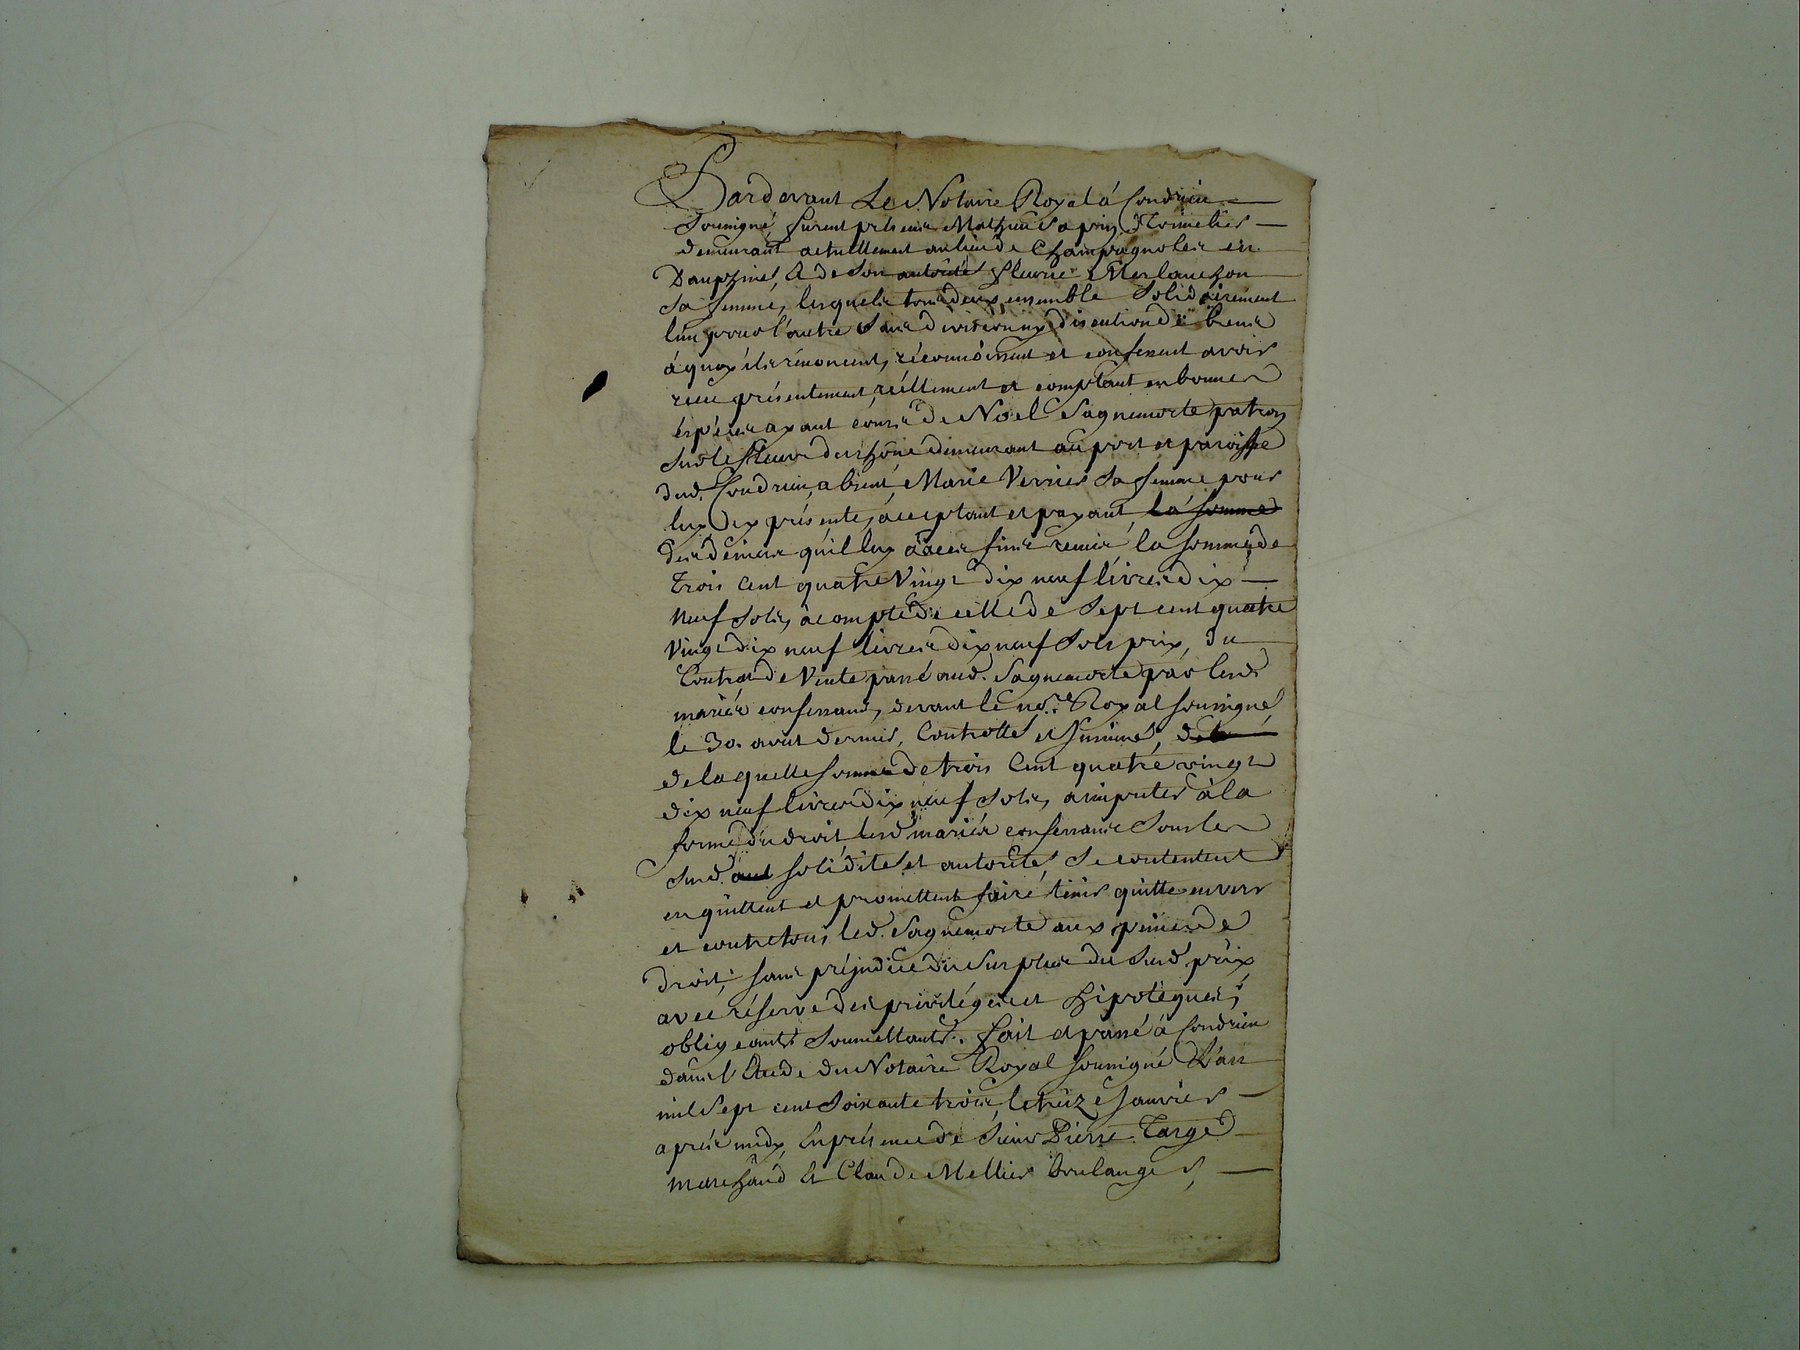 Pardevant Le Notaire Royal á Condrieu
Soussigné, furent présens Mathieu Saprin Tonnelier
demeurant actuellement au lieu de Champagnole en
Dauphiné, et de son autorité fleurie
sa femme, lesquels tous deux ensemble solidairement
l'un pour l'autre sans division ny discution de biens
á quoy ils rénoncent, réconnoissent et confessent avoir
reçu présentement réellement et comptant en bonnes
éspéces ayant cours de Noel Sagnemorte patron
sur le fleuve du rhône demeurant au port et paroisse
dud. Condrieu, absent, Marie Verrier sa femme pour
luy icy présente, acceptant et payant la somme
des deniers qu'il luy à à ces fins remis, la somme de
trois cent quatre vingt dix neuf livres dix
neuf sols, àcompte de celle de Sept cent quatre
vingt dix neuf livres dix neuf sols prix, du
Contrat de Vente passé aud. Sagnemorte par lesd.
mariés confessants, devant le nore. Royal soussigné
le 30. avril dernier, Controllé et insinué, de la
de laquelle somme de trois cent quatre vingt
dix neuf livres dix neuf sols, a imputer à la
forme du droit, lesd. mariés confessants sous les
susd. aut solidité et autorité, se contentent
en quittent et promettent faire tenir quitte envers
et contre tous led. Sagnemorte aux peines de
droit, sans préjudice du surplus du susd. prix
avec réserve des priviléges et hipotèques;
obligeants soumettants. fait et passé á Condrieu
dans l'Etude du Notaire Royal soussigné L'an
mil sept cent soixante trois, le treize Janvier
aprés midy, En présence de Sieur Pierre Targe
marchand Et Claude Mellier boulanger,